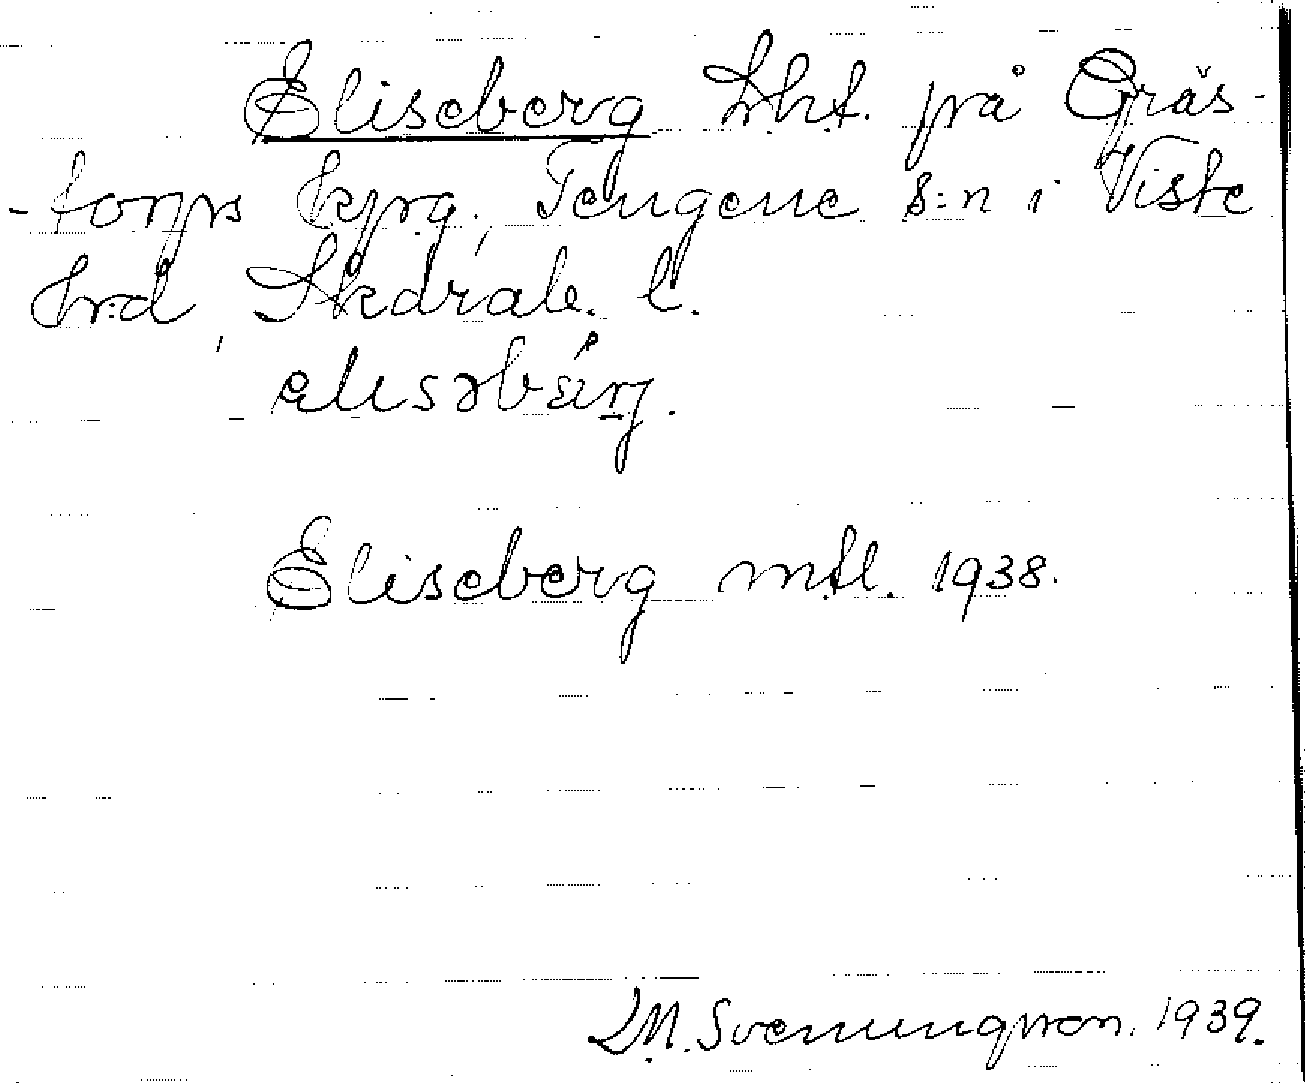 Eliseberg lht. på Gräs-
-torps kpg, Tengene s:n i Viste
hrd, Skarab. l.
Eliseberg mtl. 1938.
M. Svenungsson. 1939.